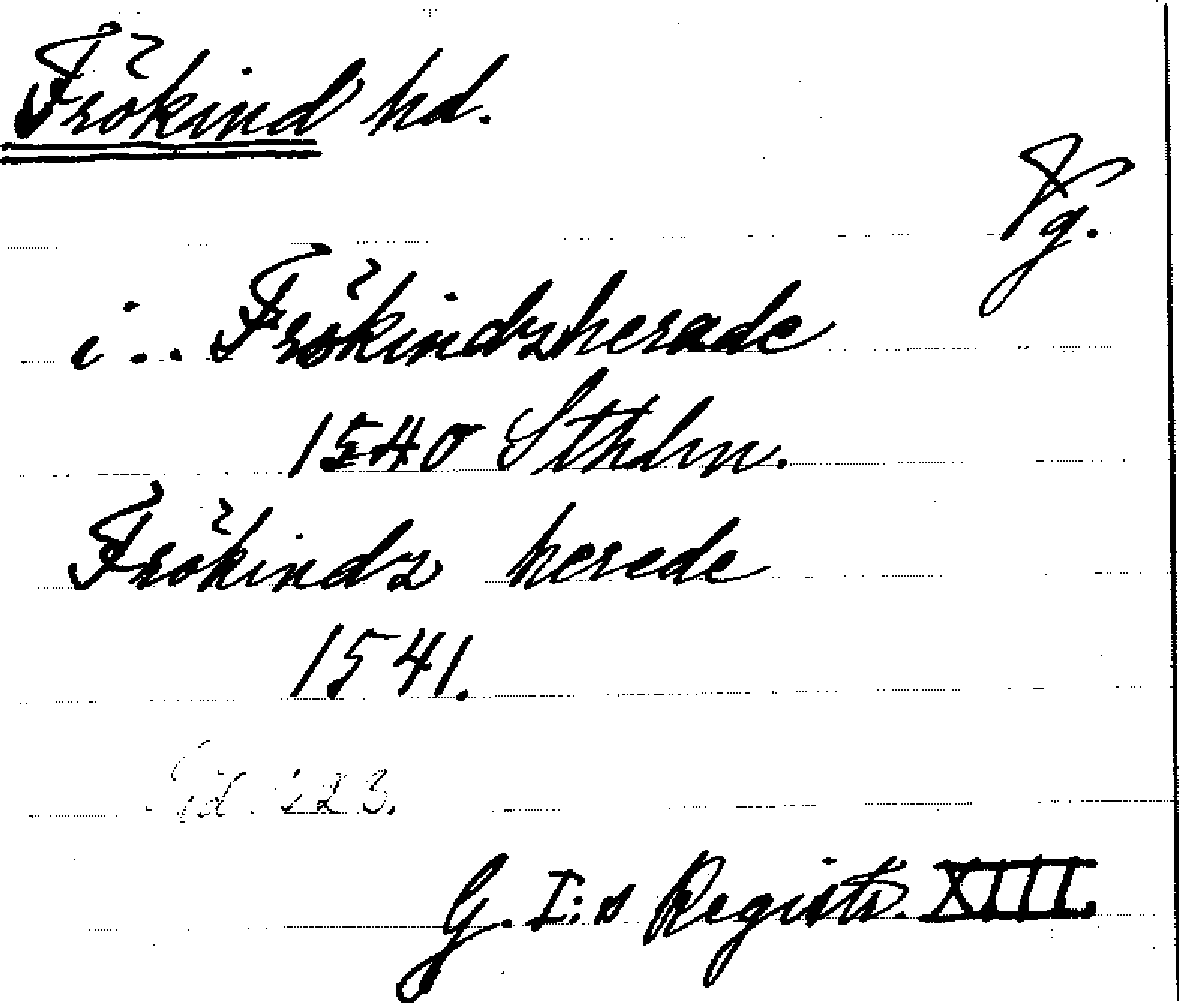 Frökind hd.
Vg.
i .. Frökindzherade
1540 Sthlm.
Frökindz herede
1541.
223.
G. I:s Registr. XIII.